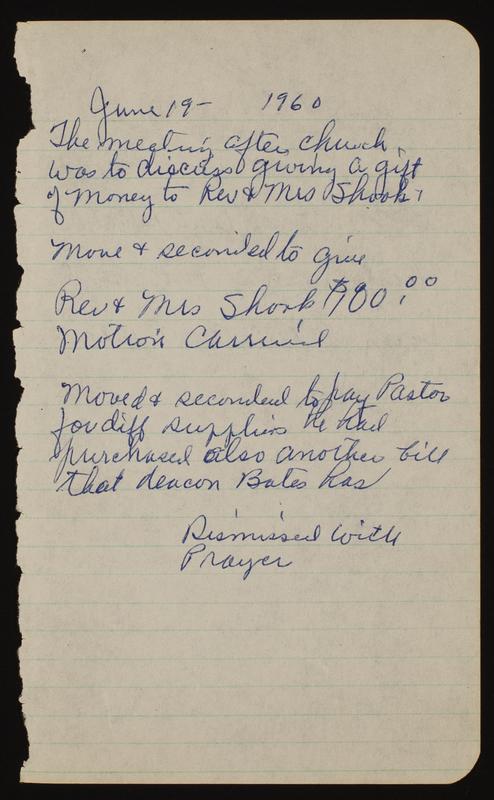 June 19- 1960
The meeting after church
was to discuss giving a gift
of Money to Rev & Mrs Shook.
Move & seconded to give
Rev & Mrs Shook $100.00
Motion Carried
Moved & seconded to pay Pastor
for diff supplies he had
purchased also another bill
that deacon Bates has
Dismissed with
Prayer